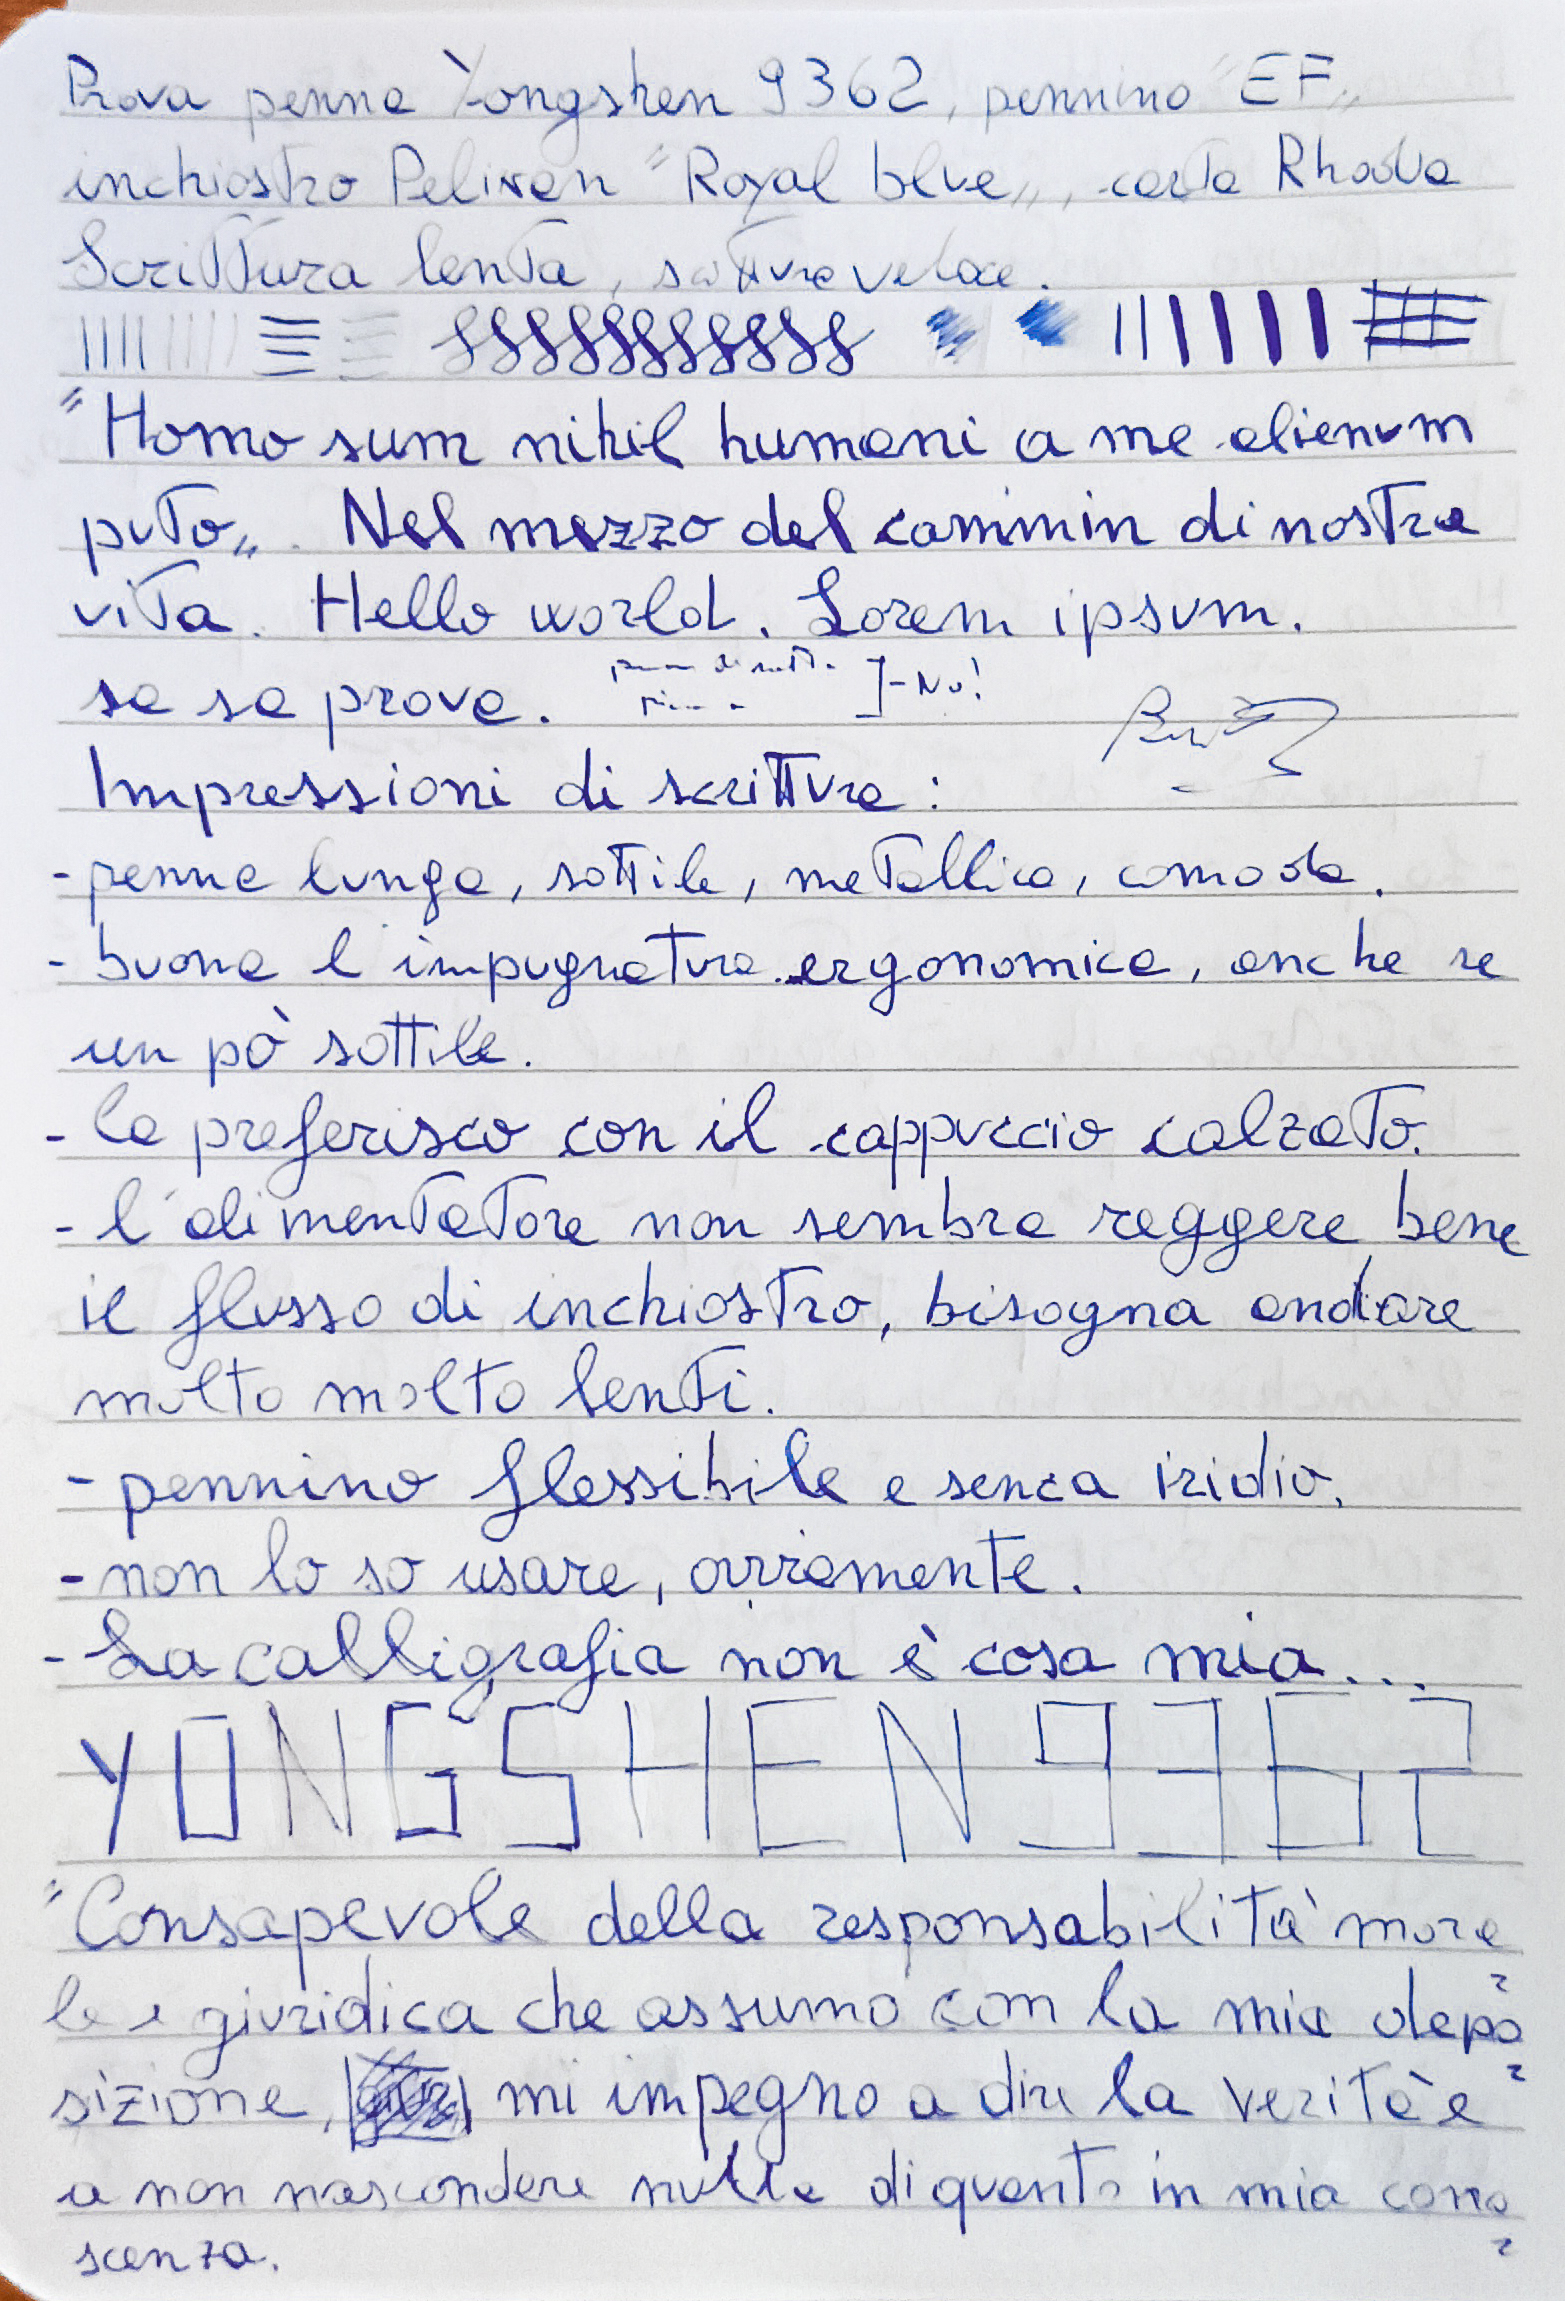 Prova penna Yongshen 9362, pennino "EF„
inchiostro Pelikan "Royal blue„, carta Rhodia
Scrittura lenta, scrittura veloce.
"Homo sum nihil humani a me alienum
puto„. Nel mezzo del cammin di nostra
vita. Hello world. Lorem ipsum.
sa sa prova.
]-No!
Impressioni di scrittura:
- penna lunga, sottile, metallica, comoda.
- buona l'impugnatura ergonomica, anche se
un pò sottile.
- la preferisco con il cappuccio calzato.
- l'alimentatore non sembra reggere bene
il flusso di inchiostro, bisogna andare
molto molto lenti.
- pennino flessibile e senza iridio.
- non lo so usare, ovviamente.
- La calligrafia non è cosa mia...
YONGSHEN 9362
"Consapevole della responsabilità mora
le e giuridica che assumo con la mia depo
sizione, mi impegno a dire la verità e
a non nascondere nulla di quanto in mia cono
scenza.